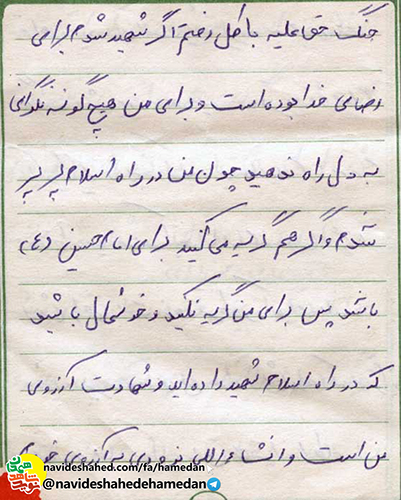 جنگ حق علیه باطل رفتم اگر شهید شدم برای
رضای خدا بوده است و برای من هیچ گونه نگرانی
به دل راه ندهید چون من در راه اسلام پرپر
شدم و اگر هم گریه می کنید برای امام حسین (ع)
باشد پس برای من گریه نکنید و خوشحال باشید
که در راه اسلام شهید داده اید و شهادت آرزوی
من است و انشاءالله بزودی به آرزوی خود
navideshahed.com/fa/hamedan
@navideshahedehamedan